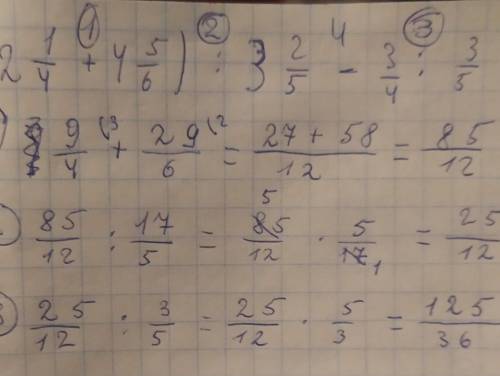 ① ② 4 ③
2 1/4 + 4 5/6 ) : 3 2/5 - 3/4 : 3/5
9/4 (3 + 29/6 (2 = 27 + 58/12 = 85/12
85/12 : 17/5 = 85/12 5 · 5/17 1 = 25/12
25/12 : 3/5 = 25/12 · 5/3 = 125/36